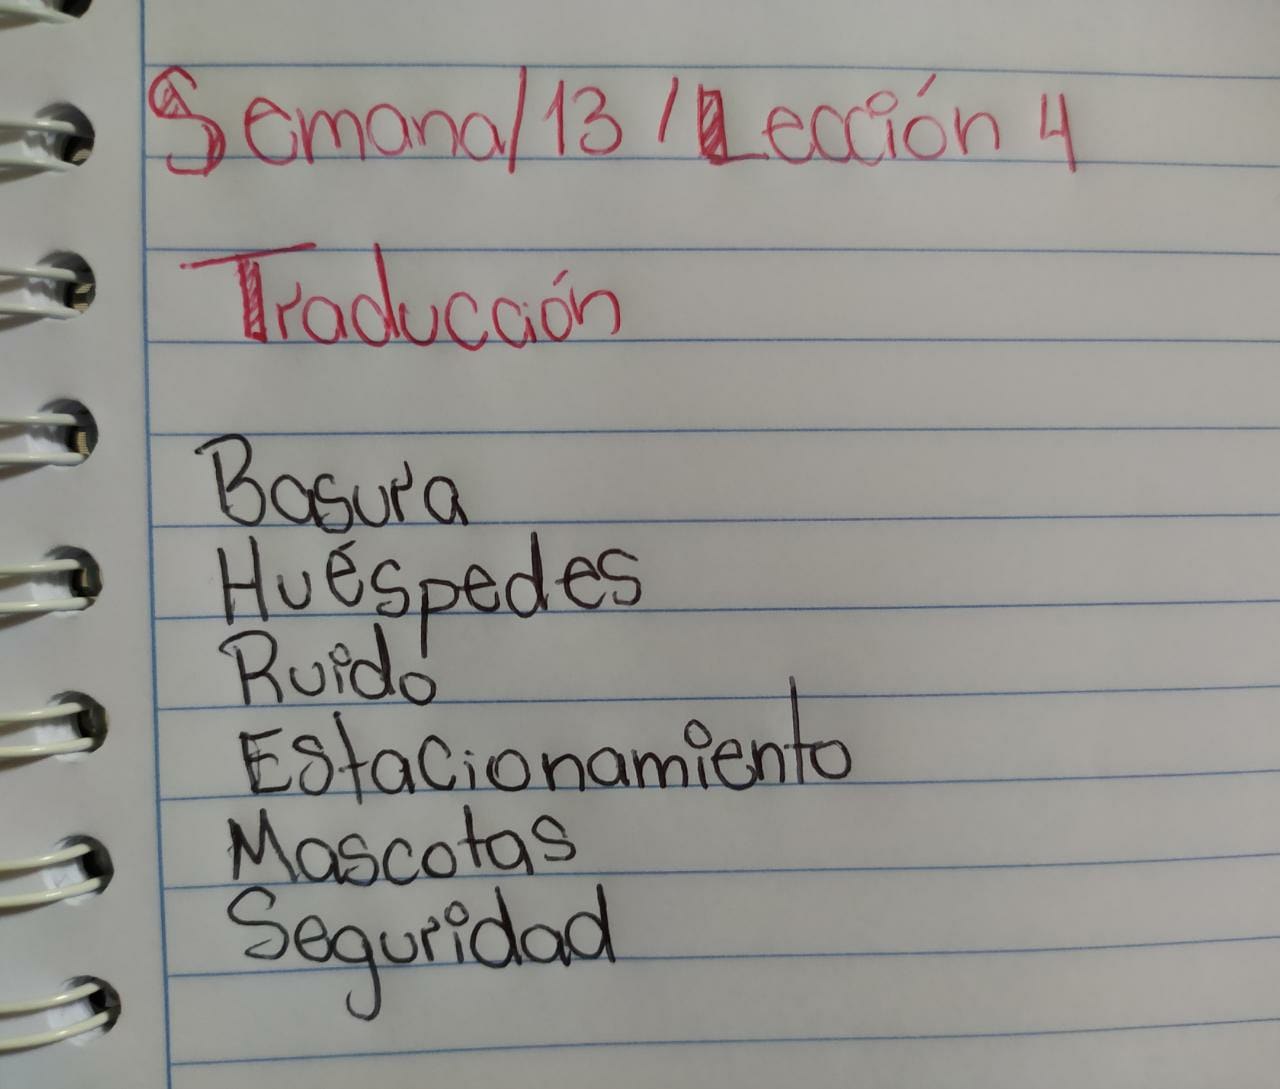 Semana/13/Lección 4
Traducción
Basura
Huéspedes
Ruido
Estacionamiento
Mascotas
Seguridad